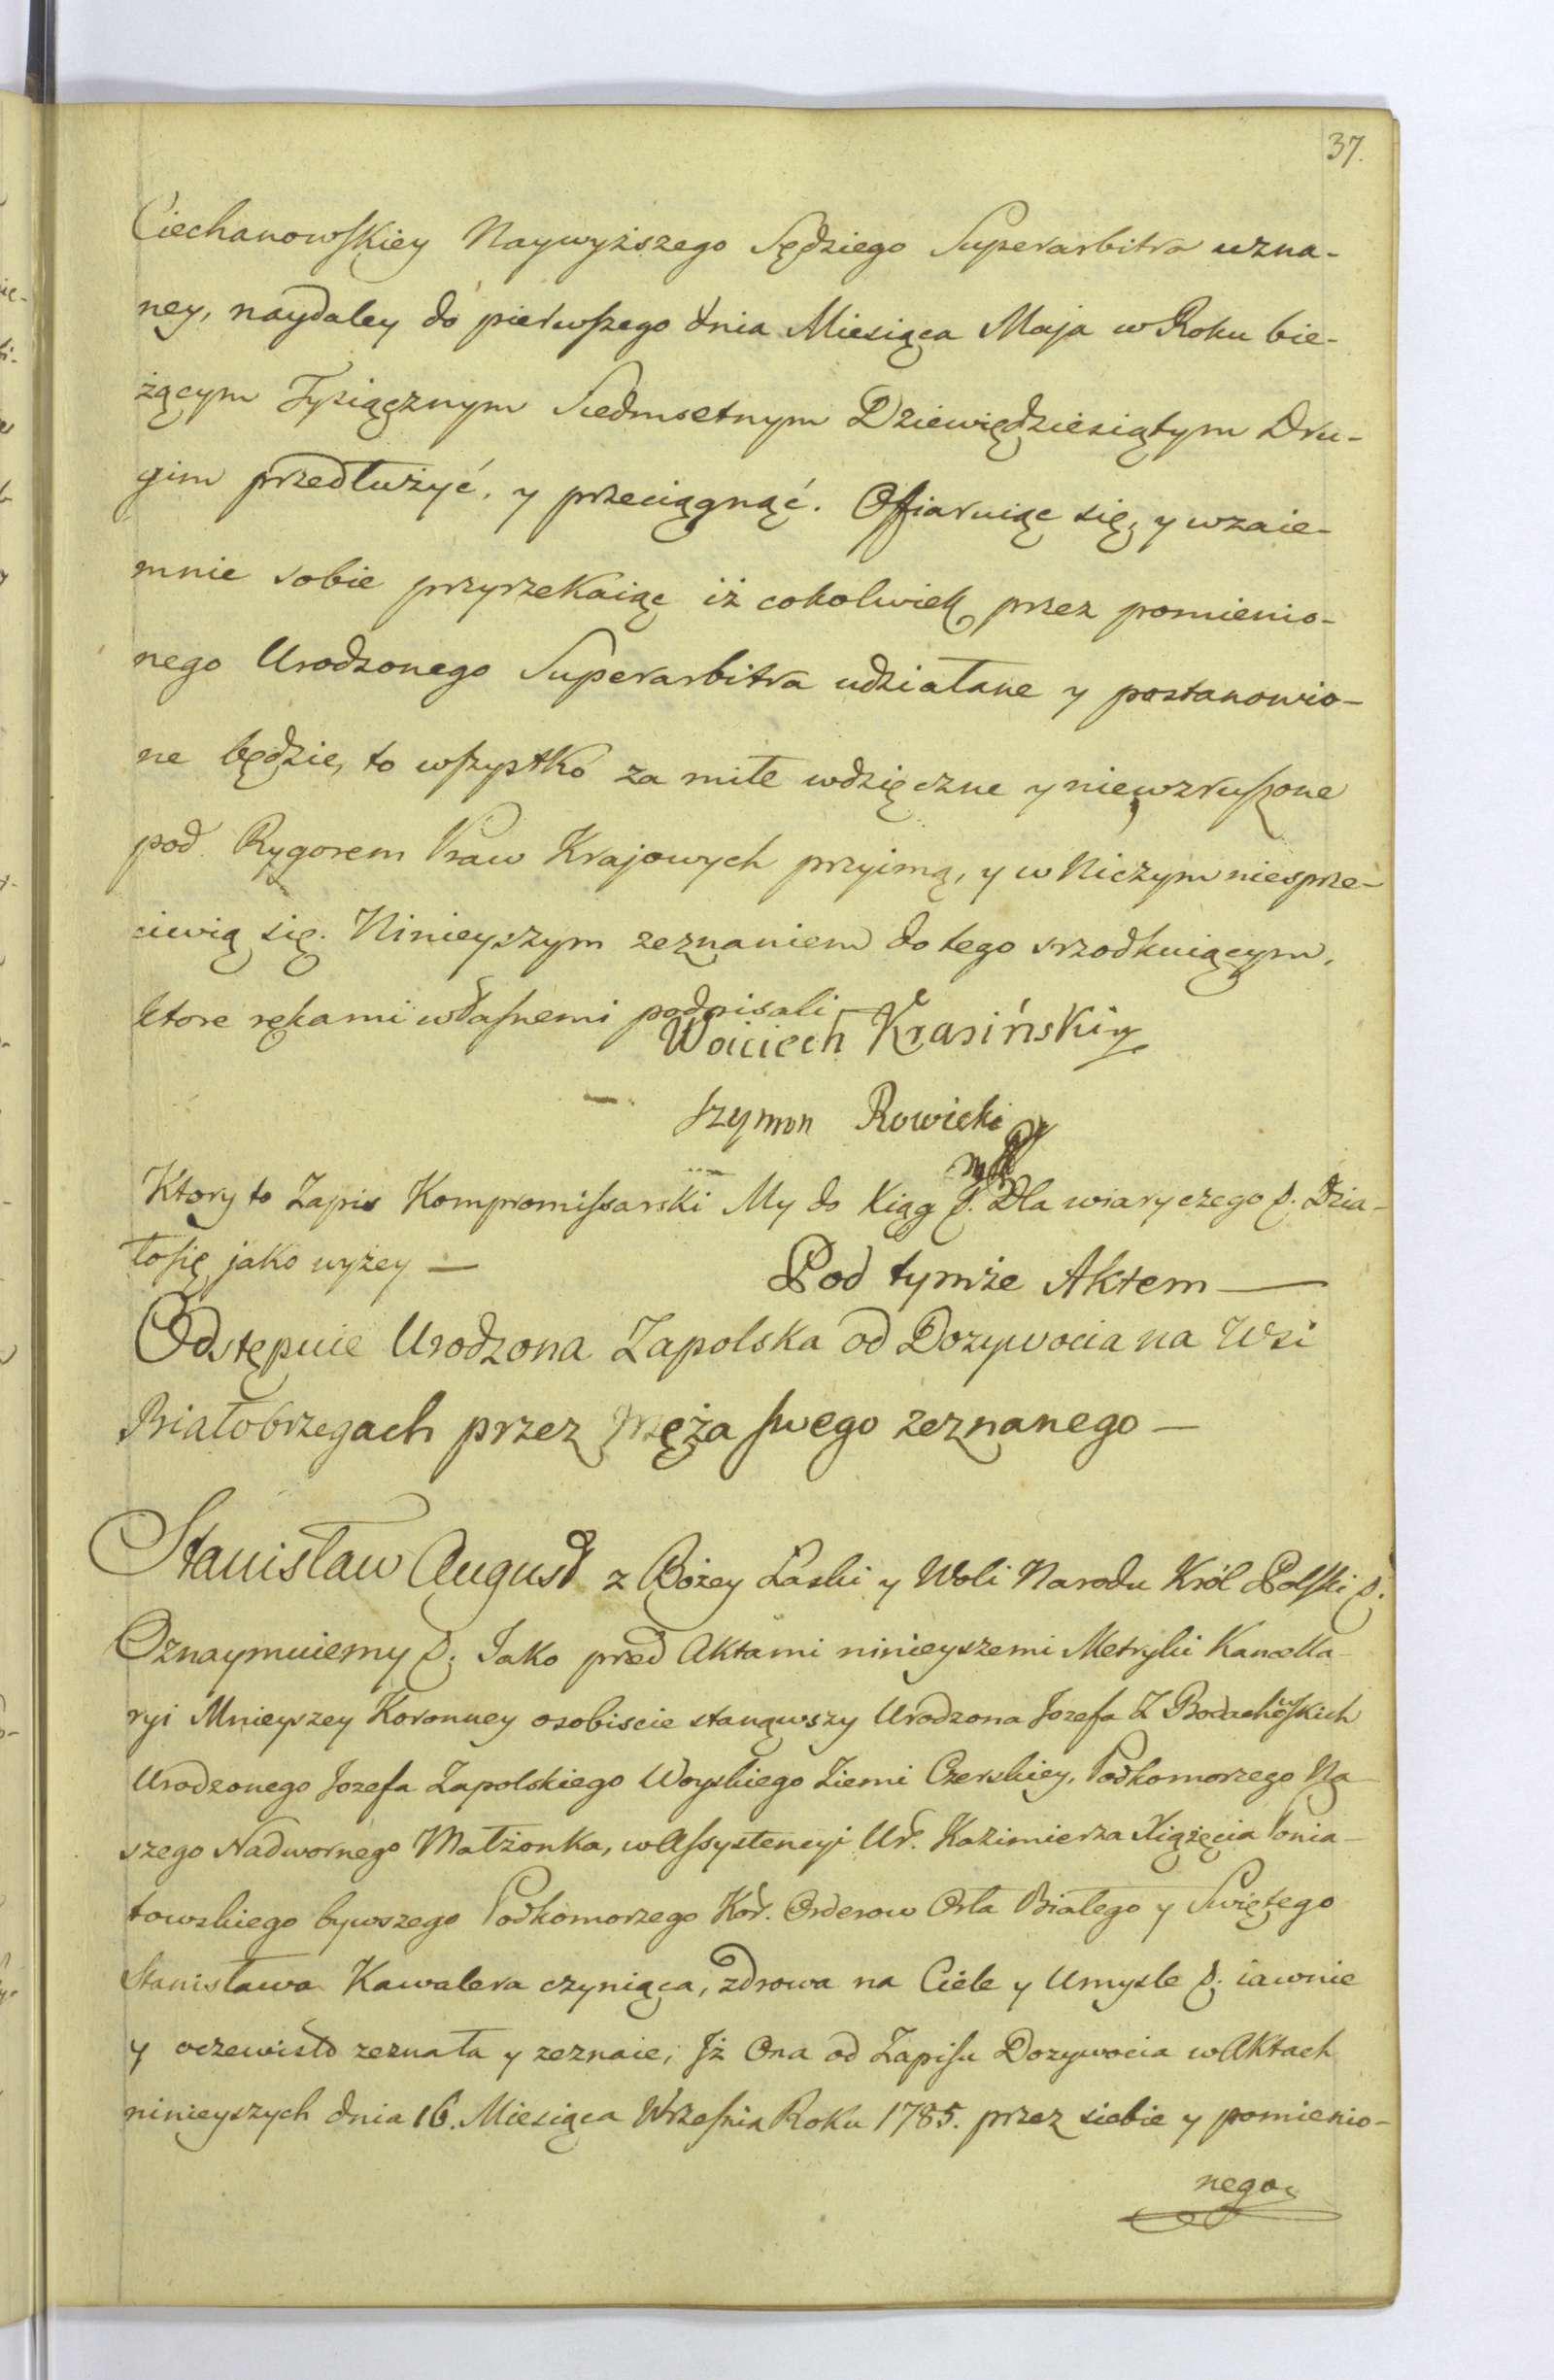 37.
Ciechanowskiey Naywyższego Sędziego Superarbitra uzna-
ney, naydaley do pierwszego dnia Miesiąca Maja w Roku bie-
żącym Tysiącznym Siedmsetnym Dziewiędziesiątym Dru-
gim przedłużyć, y przeciągnąć. Offiaruiąc się, y wzaie-
mnie sobie przyrzekaiąc iż cokolwiek przez pomienio-
nego Urodzonego Superarbitra udziałane y postanowio-
ne będzie, to wszystko za miłe wdzięczne y niewzruszone
pod Rygorem Praw Krajowych przyimą, y w Niczym niesprze-
ciwią się. Ninieyszym zeznaniem do tego srzodkuiącym,
ktore rękami własnemi podpisali
Woiciech Krasiński
Szymon Rowicki
mp
Ktory to Zapis Kompromissarski My do Xiąg p. Dla wiary czego p. Dzia-
łosię jako wyżey —
Pod tymże Aktem —
Odstępuie Urodzona Zapolska od Dozywocia na Wsi
Białobrzegach przez Męża swego zeznanego —
Stanisław August z Bożey Łaski y Woli Narodu Król Polski p.
Oznaymuiemy p. Jako przed Aktami ninieyszemi Metryki Kancella-
ryi Mnieyszey Koronney osobiscie stanąwszy Urodzona Jozefa Z
Urodzonego Jozefa Zapolskiego Woyskiego Ziemi Czerskiey, Podkomorzego Na-
szego Nadwornego Małżonka, w Assystencyi Ur. Kazimierza Xiążęcia Ponia-
towskiego bywszego Podkomorzego Kor. Orderow Orła Białego y Swiętego
Stanisława Kawalera czyniąca, zdrowa na Ciele y Umysle p. iawnie
y oczewisto zeznała y zeznaie, Jż Ona od Zapisu Dozywocia w Aktach
ninieyszych dnia 16. Miesiąca Września Roku 1785. przez siebie y pomienio-
nego